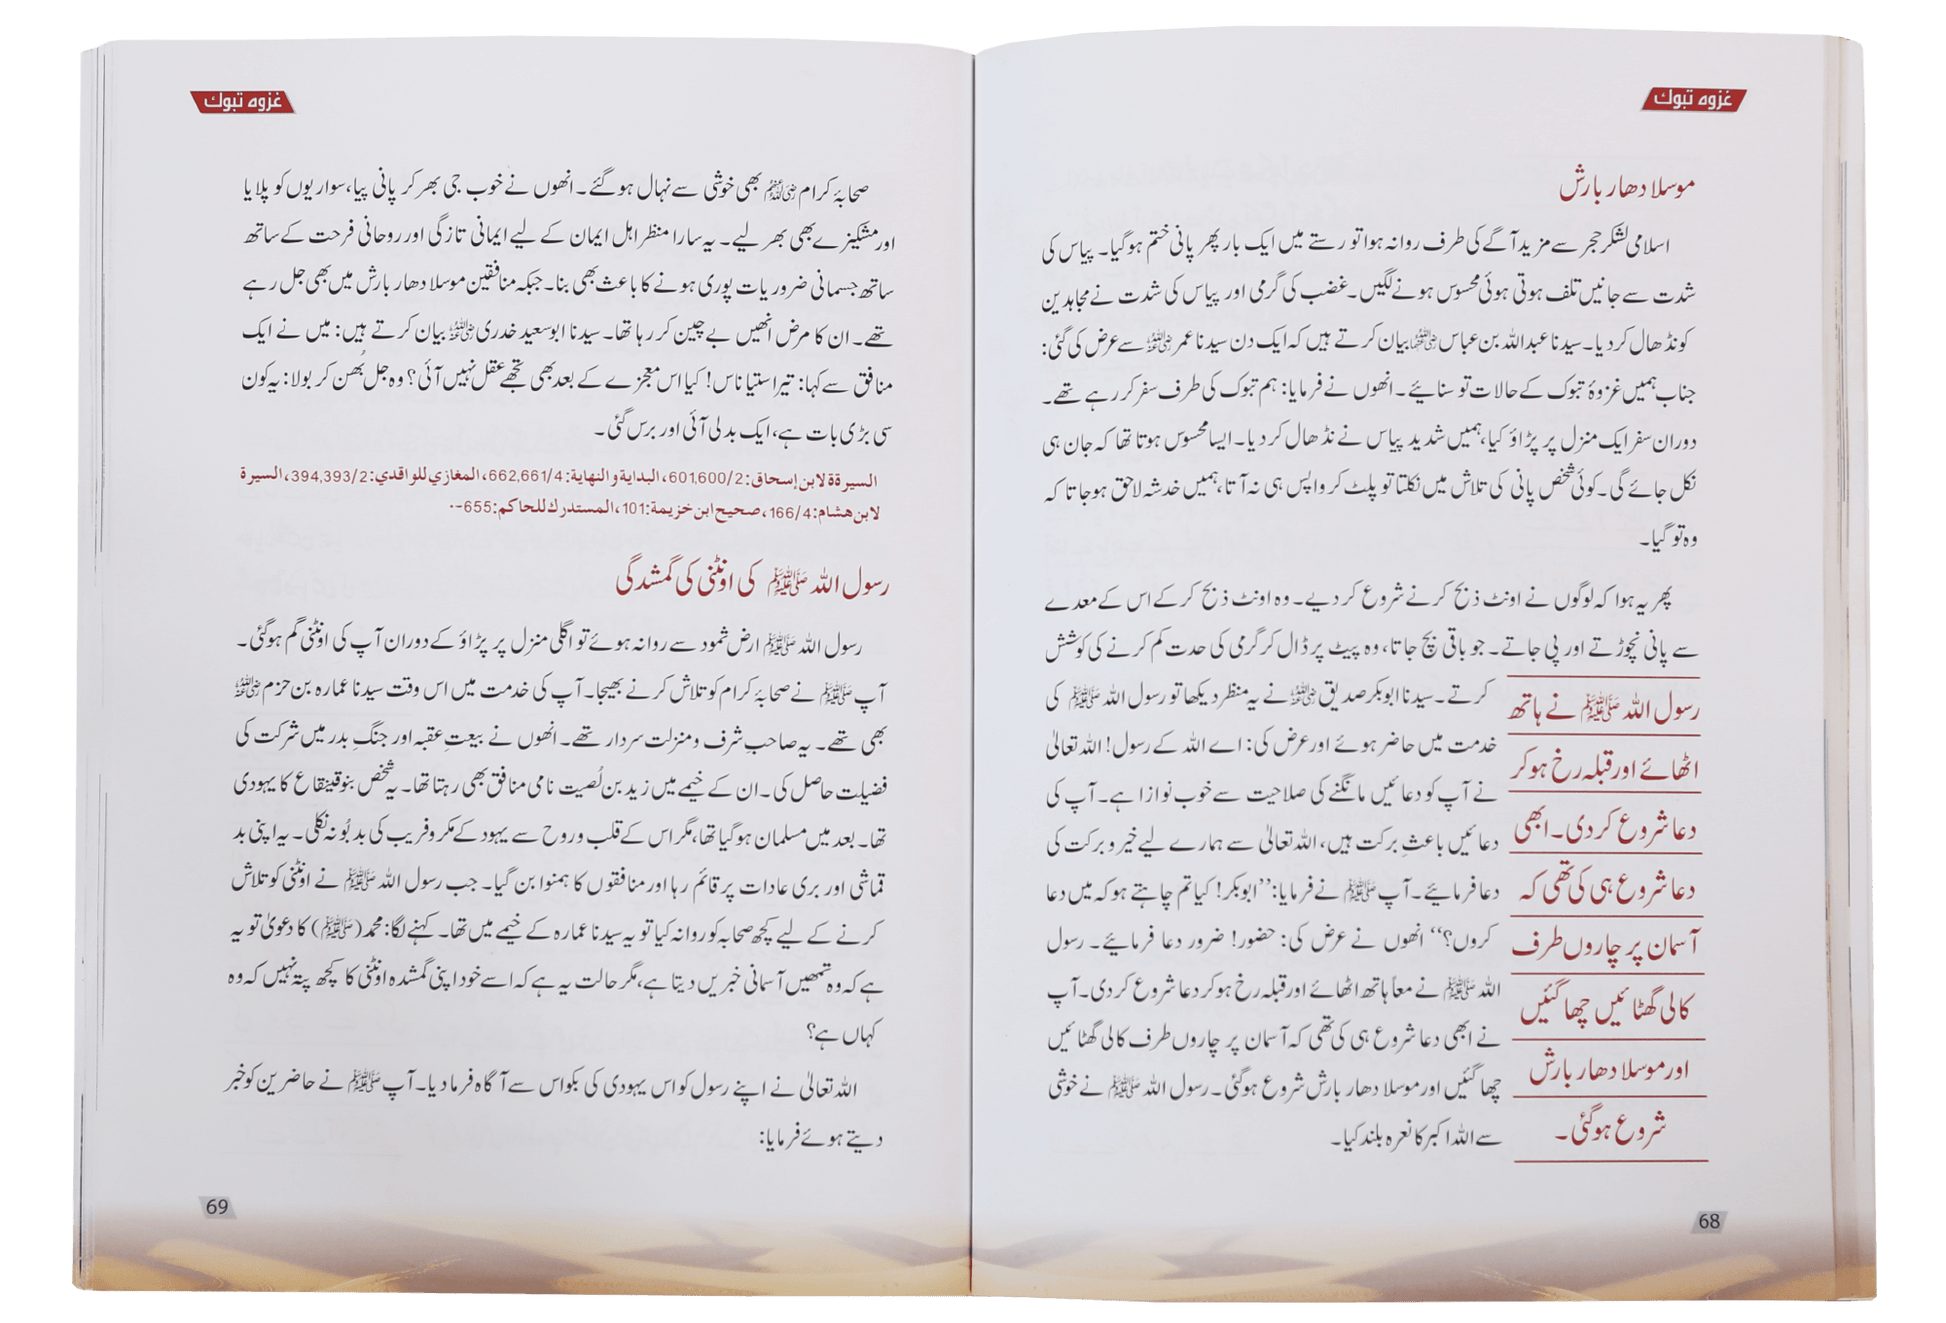 غزوہ تبوک
موسلا دھار بارش
اسلامی لشکر حجر سے مزید آگے کی طرف روانہ ہوا تو رستے میں ایک بار پھر پانی ختم ہوگیا۔ پیاس کی
شدت سے جانیں تلف ہوتی ہوئی محسوس ہونے لگیں۔ غضب کی گرمی اور پیاس کی شدت نے مجاہدین
کو نڈھال کر دیا۔ سیدنا عبداللہ بن عباس رضی اللہ عنہما بیان کرتے ہیں کہ ایک دن سیدنا عمر رضی اللہ عنہ سے عرض کی گئی:
جناب ہمیں غزوۂ تبوک کے حالات تو سنائیے۔ انھوں نے فرمایا: ہم تبوک کی طرف سفر کر رہے تھے۔
دوران سفر ایک منزل پر پڑاؤ کیا، ہمیں شدید پیاس نے نڈھال کر دیا۔ ایسا محسوس ہوتا تھا کہ جان ہی
نکل جائے گی۔ کوئی شخص پانی کی تلاش میں نکلتا تو پلٹ کر واپس ہی نہ آتا، ہمیں خدشہ لاحق ہو جاتا کہ
وہ تو گیا۔
پھر یہ ہوا کہ لوگوں نے اونٹ ذبح کرنے شروع کر دیے۔ وہ اونٹ ذبح کرکے اس کے معدے
سے پانی نچوڑتے اور پی جاتے۔ جو باقی بچ جاتا، وہ پیٹ پر ڈال کر گرمی کی حدت کم کرنے کی کوشش
کرتے۔ سیدنا ابوبکر صدیق رضی اللہ عنہ نے یہ منظر دیکھا تو رسول اللہ ﷺ کی
خدمت میں حاضر ہوئے اور عرض کی: اے اللہ کے رسول! اللہ تعالیٰ
نے آپ کو دعائیں مانگنے کی صلاحیت سے خوب نوازا ہے۔ آپ کی
دعائیں باعثِ برکت ہیں، اللہ تعالیٰ سے ہمارے لیے خیر و برکت کی
دعا فرمائیے۔ آپ ﷺ نے فرمایا: ’’ابوبکر! کیا تم چاہتے ہو کہ میں دعا
کروں؟‘‘ انھوں نے عرض کی: حضور! ضرور دعا فرمائیے۔ رسول
اللہ ﷺ نے معاً ہاتھ اٹھائے اور قبلہ رخ ہو کر دعا شروع کر دی۔ آپ
نے ابھی دعا شروع ہی کی تھی کہ آسمان پر چاروں طرف کالی گھٹائیں
چھا گئیں اور موسلا دھار بارش شروع ہوگئی۔ رسول اللہ ﷺ نے خوشی
سے اللہ اکبر کا نعرہ بلند کیا۔
رسول اللہ ﷺ نے ہاتھ
اٹھائے اور قبلہ رخ ہو کر
دعا شروع کر دی۔ ابھی
دعا شروع ہی کی تھی کہ
آسمان پر چاروں طرف
کالی گھٹائیں چھا گئیں
اور موسلا دھار بارش
شروع ہوگئی۔
68
غزوہ تبوک
صحابۂ کرام رضی اللہ عنہم بھی خوشی سے نہال ہو گئے۔ انھوں نے خوب جی بھر کر پانی پیا، سواریوں کو پلایا
اور مشکیزے بھی بھر لیے۔ یہ سارا منظر اہل ایمان کے لیے ایمانی تازگی اور روحانی فرحت کے ساتھ
ساتھ جسمانی ضروریات پوری ہونے کا باعث بھی بنا۔ جبکہ منافقین موسلا دھار بارش میں بھی جل رہے
تھے۔ ان کا مرض انھیں بے چین کر رہا تھا۔ سیدنا ابوسعید خدری رضی اللہ عنہ بیان کرتے ہیں: میں نے ایک
منافق سے کہا: تیرا ستیاناس! کیا اس معجزے کے بعد بھی تجھے عقل نہیں آئی؟ وہ جل بُھن کر بولا: یہ کون
سی بڑی بات ہے، ایک بدلی آئی اور برس گئی۔
السیرۃۃ لابن إسحاق: 601,600/2، البدایة والنهایة: 662,661/4، المغازي للواقدي: 394,393/2، السیرة
لابن هشام: 166/4، صحیح ابن خزیمة: 101، المستدرك للحاکم: 655۔۰
رسول اللہ ﷺ کی اونٹنی کی گمشدگی
رسول اللہ ﷺ ارض ثمود سے روانہ ہوئے تو اگلی منزل پر پڑاؤ کے دوران آپ کی اونٹنی گم ہوگئی۔
آپ ﷺ نے صحابۂ کرام کو تلاش کرنے بھیجا۔ آپ کی خدمت میں اس وقت سیدنا عمارہ بن حزم رضی اللہ عنہ
بھی تھے۔ یہ صاحب شرف ومنزلت سردار تھے۔ انھوں نے بیعتِ عقبہ اور جنگِ بدر میں شرکت کی
فضیلت حاصل کی۔ ان کے خیمے میں زید بن لُصیت نامی منافق بھی رہتا تھا۔ یہ شخص بنو قینقاع کا یہودی
تھا۔ بعد میں مسلمان ہو گیا تھا، مگر اس کے قلب و روح سے یہود کے مکر و فریب کی بدبُو نہ نکلی۔ یہ اپنی بد
قماشی اور بری عادات پر قائم رہا اور منافقوں کا ہمنوا بن گیا۔ جب رسول اللہ ﷺ نے اونٹنی کو تلاش
کرنے کے لیے کچھ صحابہ کو روانہ کیا تو یہ سیدنا عمارہ کے خیمے میں تھا۔ کہنے لگا: محمد (ﷺ) کا دعویٰ تو یہ
ہے کہ وہ تمھیں آسمانی خبریں دیتا ہے، مگر حالت یہ ہے کہ اسے خود اپنی گمشدہ اونٹنی کا کچھ پتہ نہیں کہ وہ
کہاں ہے؟
اللہ تعالیٰ نے اپنے رسول کو اس یہودی کی بکواس سے آگاہ فرما دیا۔ آپ ﷺ نے حاضرین کو خبر
دیتے ہوئے فرمایا:
69